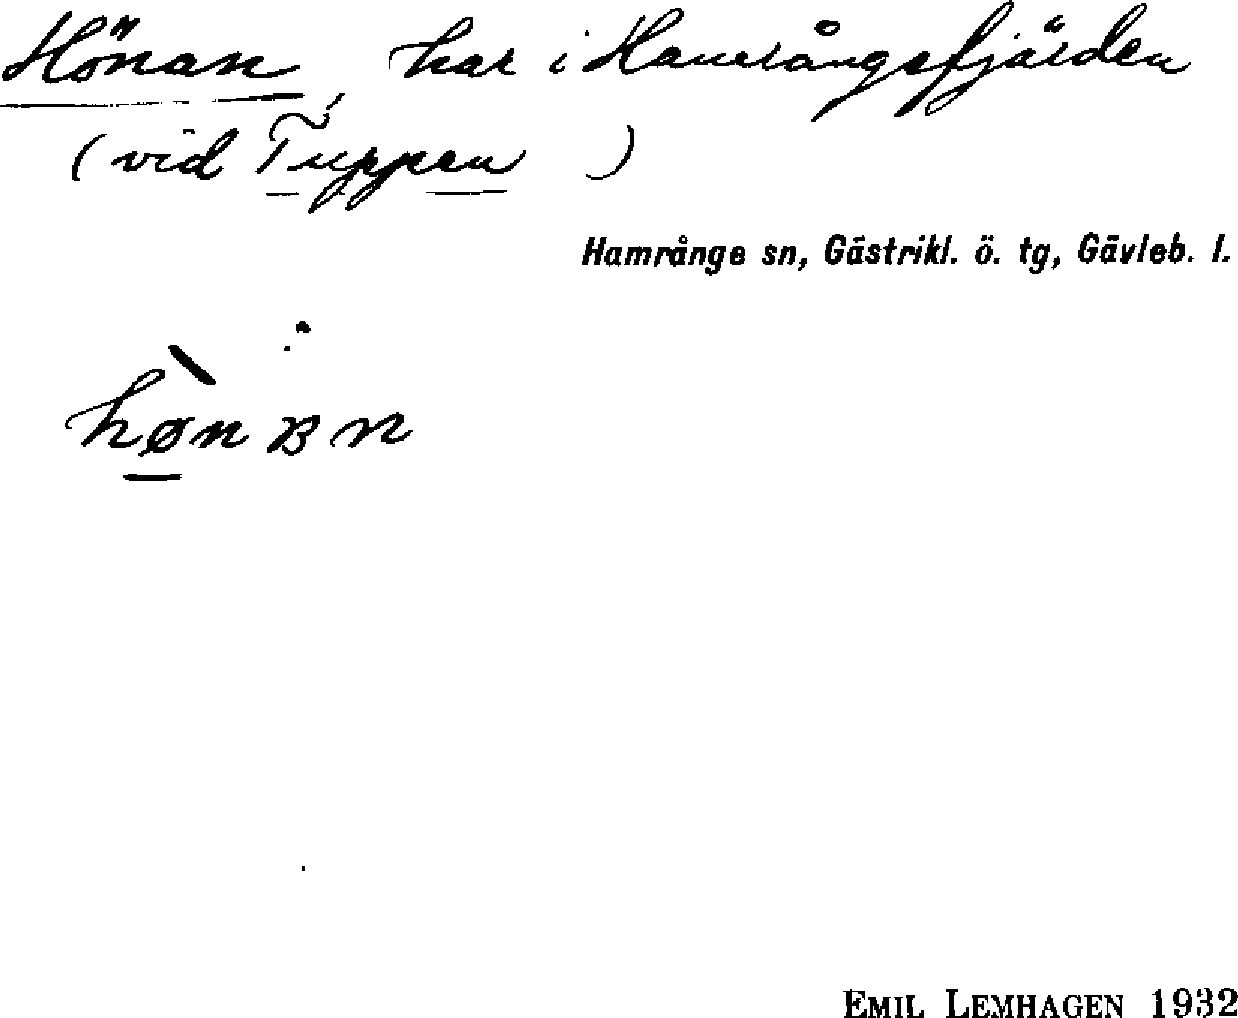 Hönan, har i Hamrångefjärden
(vid Tuppen )
Hamrånge sn, Gästrikl. ö. tg, Gävleb. l.
hø̀nʙn
EMIL LEMHAGEN 1932